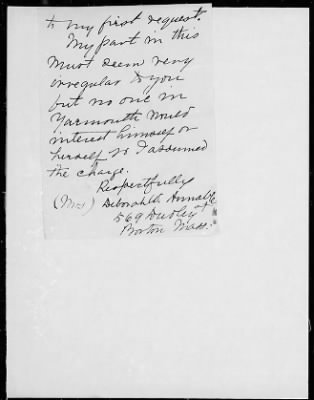 to my first request.
My part in this
must seem very
irregular to you
but no one in
Yarmouth would
interest himself or
herself so I assumed
the charge.
Respectfully
(Mrs) Deborah C. Annable
569 Dudley St
Boston Mass.